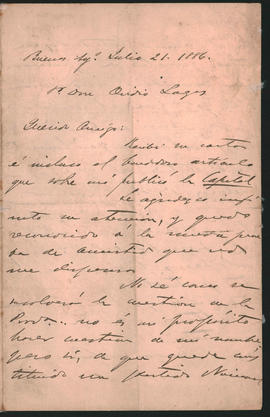 Buenos Ay.s Julio 21. 1886.
Sr. Don Ovidio Lagos
Querido Amigo:
Recibí su carta
é incluso el bondoso artículo
que sobre mí publicó la Capital
Le agradezco infi-
nito su atencion, y quedo
reconocido á la nueva prue
ba de amistad que vd
me dispensa
No sé como se
resolverá la cuestion de la
Presd.. no és mi propósito
hacer cuestion de mi nombre
pero sí, de que quede cons
tituido un partido Nacional